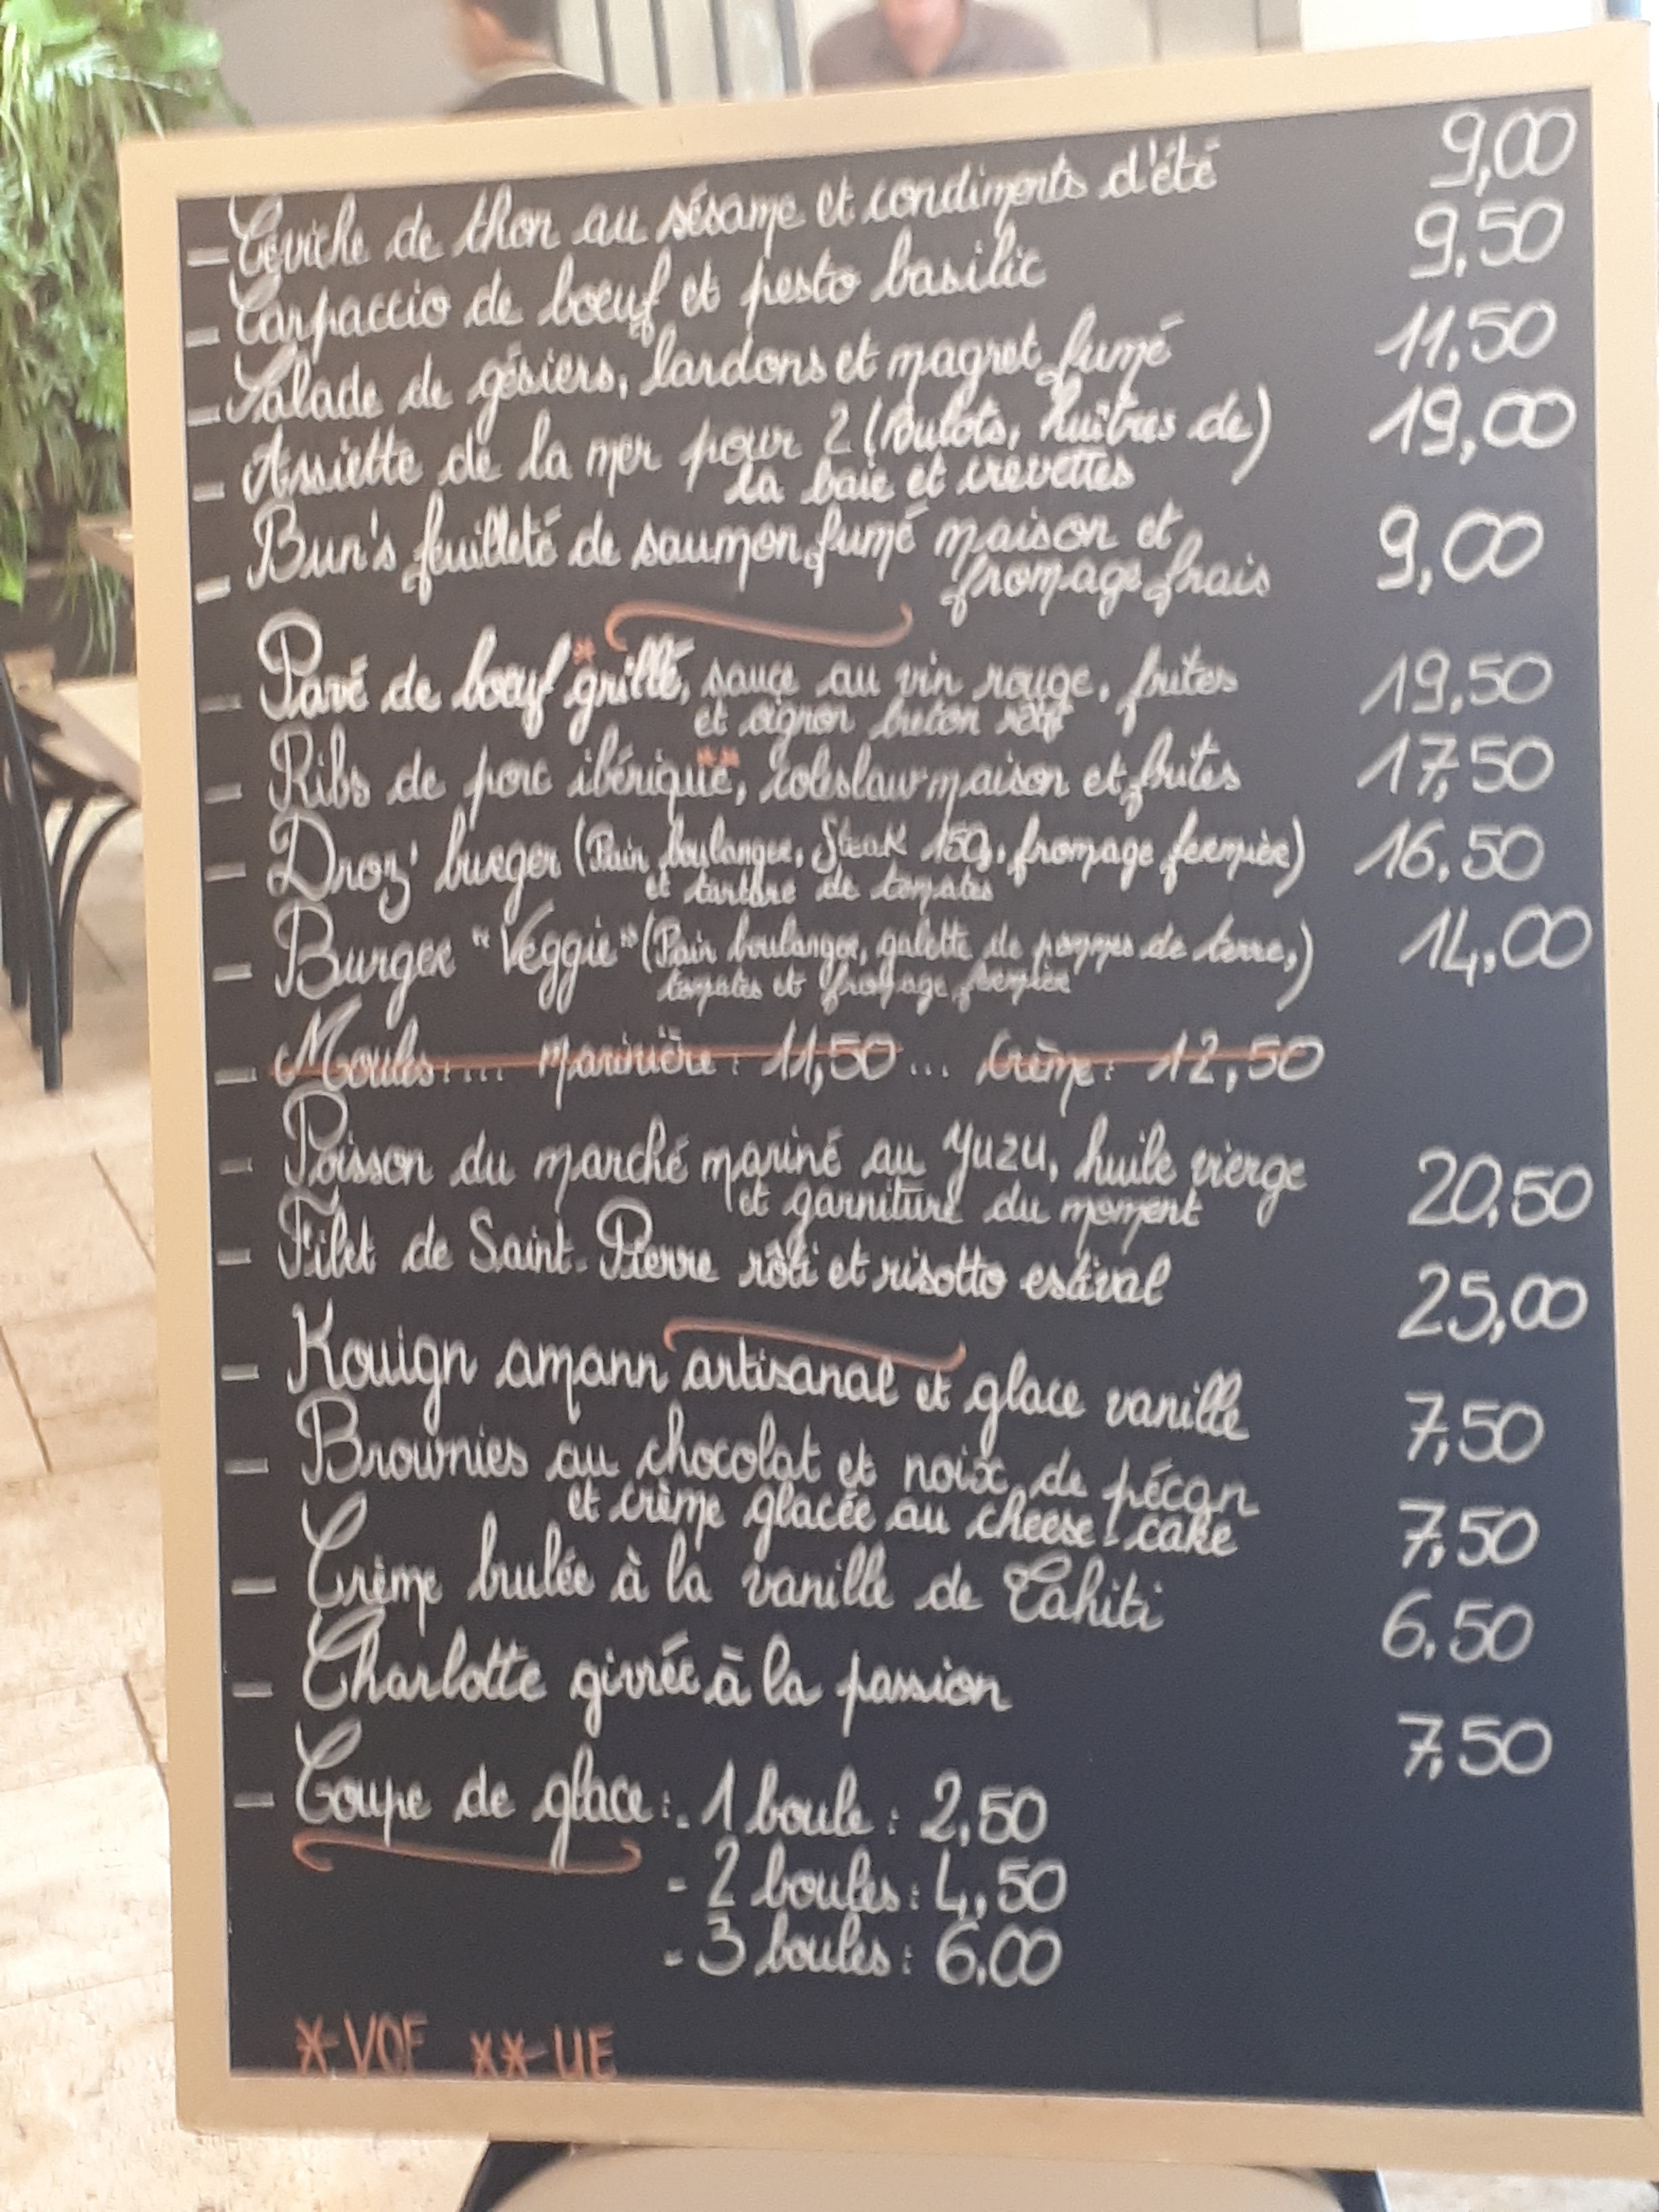 - Ceviche de thon au sésame et condiments d'été 9,00
- Carpaccio de boeuf et pesto basilic 9,50
- Salade de gésiers, lardons et magret fumé 11,50
- Assiette de la mer pour 2 (Bulots, huîtres de) 19,00
la baie et crevettes
- Bun's feuilleté de saumon fumé maison et 9,00
fromage frais
- Pavé de boeuf* grillé, sauce au vin rouge, frites 19,50
et oignon breton rôti
- Ribs de porc ibérique**, coleslaw maison et frites 17,50
- Droz' burger (Pain boulanger, Steak 150g, fromage fermier) 16,50
et tartare de tomates
- Burger "Veggie" (Pain boulanger, galette de pommes de terre,) 14,00
tomates et fromage fermier
- Moules.... marinière : 11,50 ... Crème : 12,50
- Poisson du marché mariné au yuzu, huile vierge 20,50
et garniture du moment
- Filet de Saint-Pierre rôti et risotto estival 25,00
- Kouign amann artisanal et glace vanille 7,50
- Brownies au chocolat et noix de pécan 7,50
et crème glacée au cheese-cake
- Crème brulée à la vanille de Tahiti 6,50
- Charlotte givrée à la passion 7,50
- Coupe de glace : - 1 boule : 2,50
- 2 boules : 4,50
- 3 boules : 6,00
*-VOF **-UE